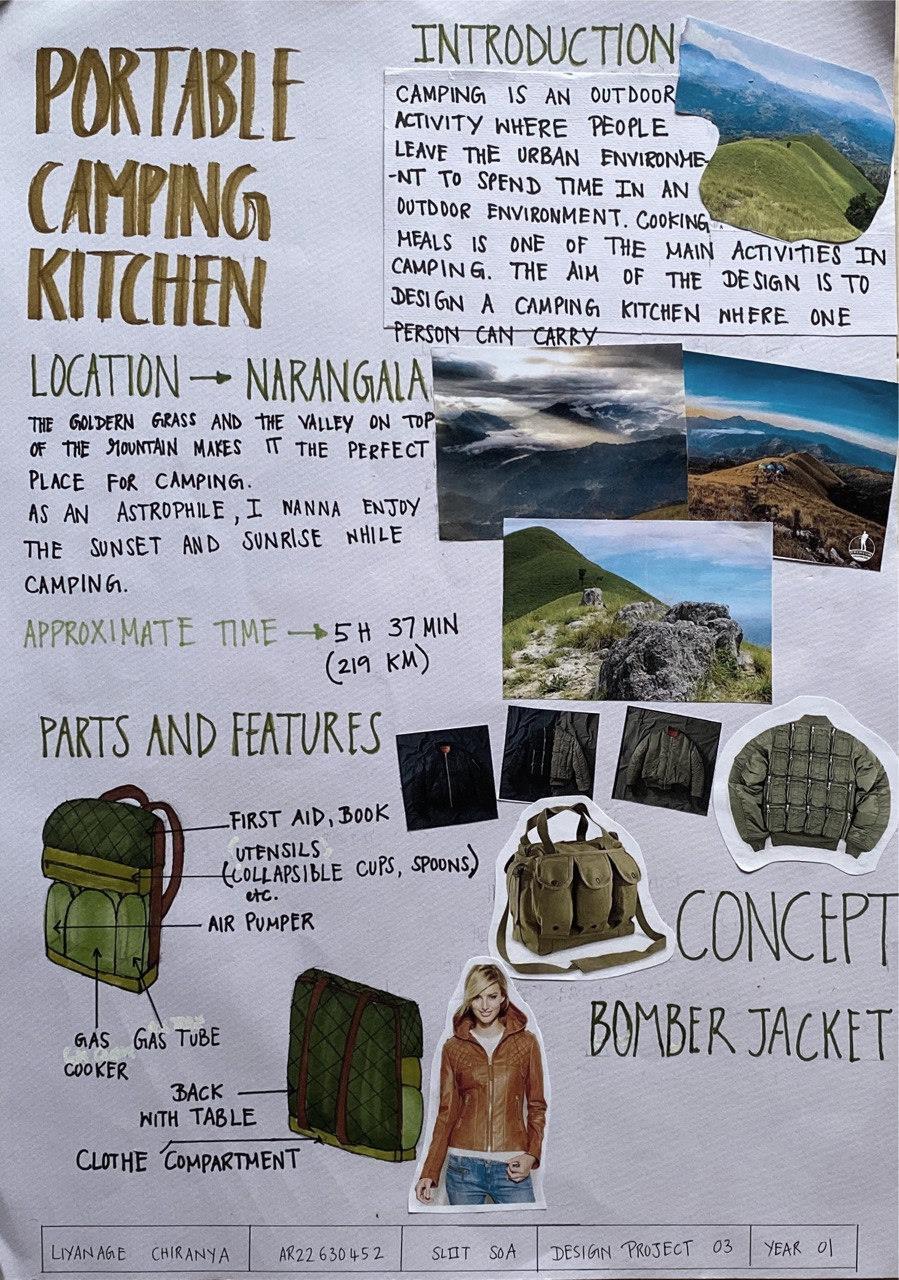 PORTABLE
CAMPING
KITCHEN
INTRODUCTION
CAMPING IS AN OUTDOOR
ACTIVITY WHERE PEOPLE
LEAVE THE URBAN ENVIRONME-
-NT TO SPEND TIME IN AN
OUTDOOR ENVIRONMENT. COOKING
MEALS IS ONE OF THE MAIN ACTIVITIES IN
CAMPING. THE AIM OF THE DESIGN IS TO
DESIGN A CAMPING KITCHEN WHERE ONE
PERSON CAN CARRY
LOCATION → NARANGALA
THE GOLDERN GRASS AND THE VALLEY ON TOP
OF THE MOUNTAIN MAKES IT THE PERFECT
PLACE FOR CAMPING.
AS AN ASTROPHILE, I WANNA ENJOY
THE SUNSET AND SUNRISE WHILE
CAMPING.
APPROXIMATE TIME → 5H 37MIN
(219 KM)
PARTS AND FEATURES
FIRST AID, BOOK
UTENSILS
(COLLAPSIBLE CUPS, SPOONS,)
etc.
AIR PUMPER
GAS
COOKER
GAS TUBE
BACK
WITH TABLE
CLOTHE COMPARTMENT
CONCEPT
BOMBER JACKET
LIYANAGE CHIRANYA
AR22630452
SLIIT SOA
DESIGN PROJECT 03
YEAR 01